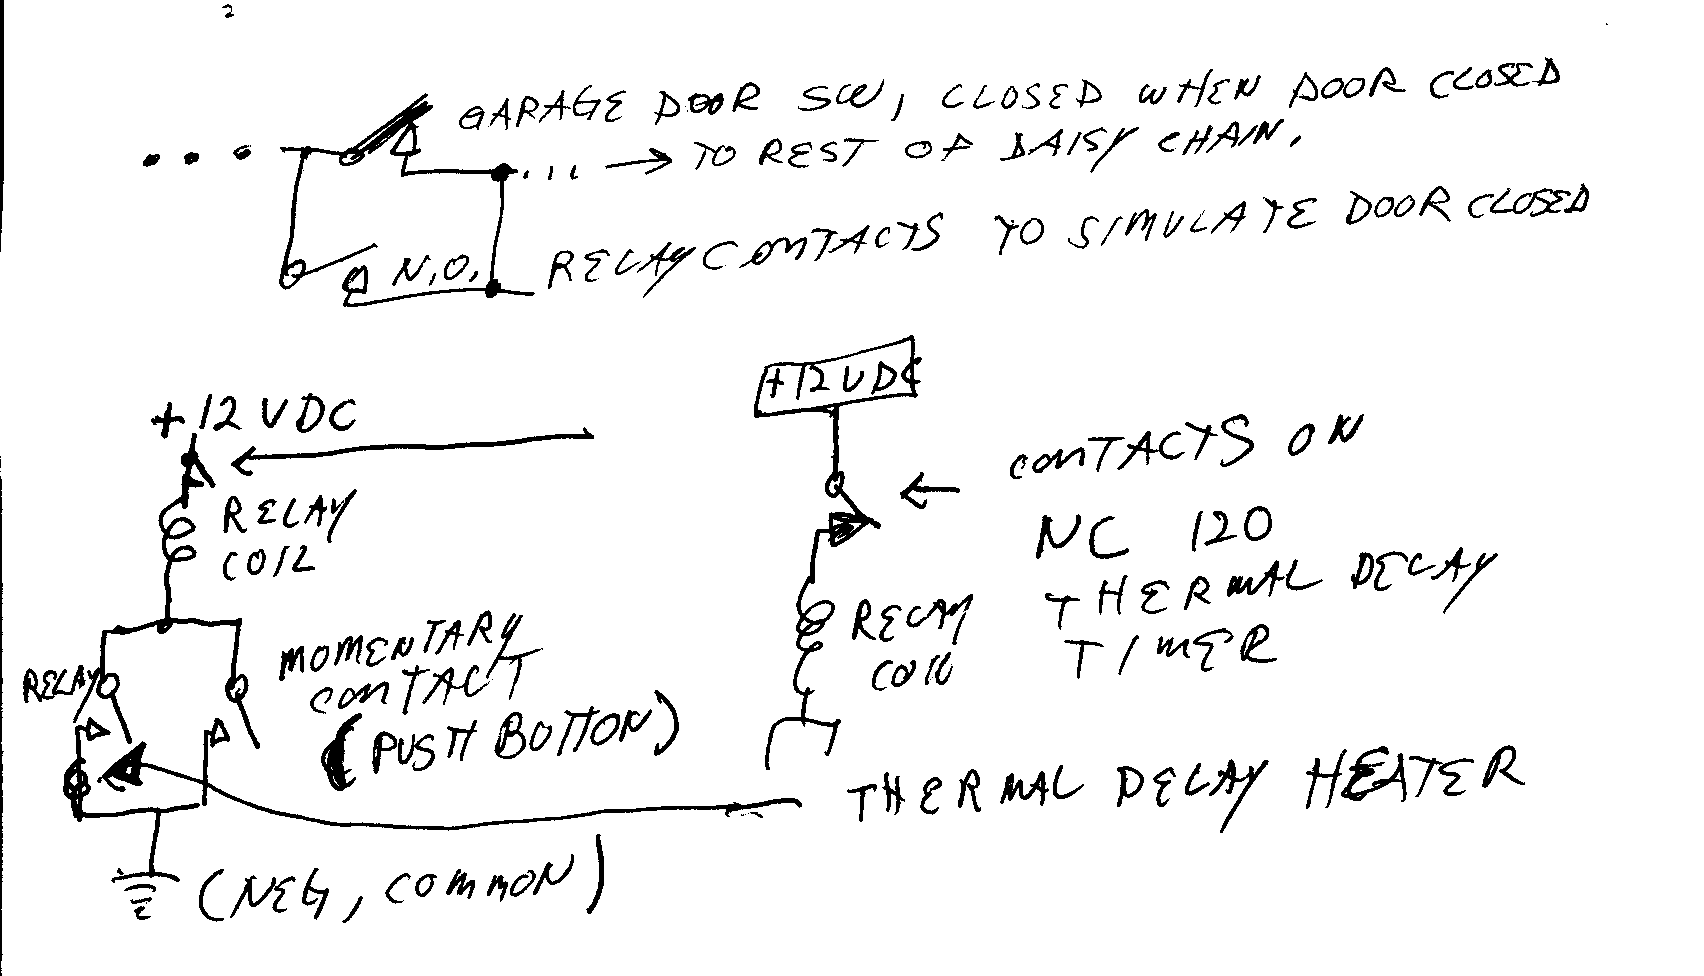 2
GARAGE DOOR SW, CLOSED WHEN DOOR CLOSED
... → TO REST OF DAISY CHAIN.
N.O. RELAY CONTACTS TO SIMULATE DOOR CLOSED
+12VDC
+12VDC
CONTACTS ON
NC 120
THERMAL DELAY
TIMER
RELAY
COIL
RELAY
COIL
RELAY
MOMENTARY
CONTACT
(PUSH BOTTON)
THERMAL DELAY HEATER
(NEG, COMMON)